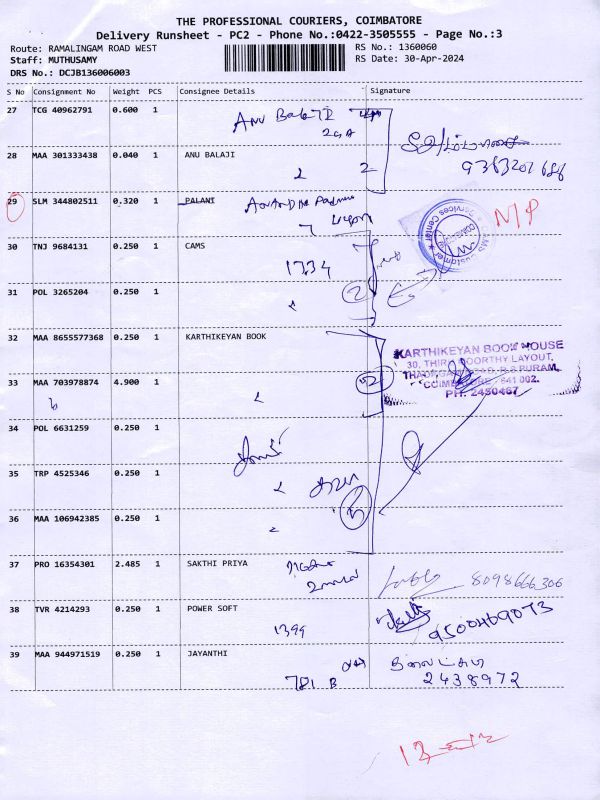 THE PROFESSIONAL COURIERS, COIMBATORE
Delivery Runsheet - PC2 - Phone No.:0422-3505555 - Page No.:3
Route: RAMALINGAM ROAD WEST RS No.: 1360060
Staff: MUTHUSAMY RS Date: 30-Apr-2024
DRS No.: DCJB136006003
S No Consignment No Weight PCS Consignee Details Signature
27 TCG 40962791 0.600 1 ANU BalaJI
28 MAA 301333438 0.040 1 ANU BALAJI
2 2
29 SLM 344802511 0.320 1 PALANI N/P
30 TNJ 9684131 0.250 1 CAMS
1234
31 POL 3265204 0.250 1 2
32 MAA 8655577368 0.250 1 KARTHIKEYAN BOOK
KARTHIKEYAN BOOK HOUSE
30, THIRUMOORTHY LAYOUT,
R.S.PURAM,
COIMBATORE - 641 002.
PH: 2450467
33 MAA 703978874 4.900 1
34 POL 6631259 0.250 1
35 TRP 4525346 0.250 1
36 MAA 106942385 0.250 1
37 PRO 16354301 2.485 1 SAKTHI PRIYA
8098666306
38 TVR 4214293 0.250 1 POWER SOFT
1399 9500469073
39 MAA 944971519 0.250 1 JAYANTHI
781 B 2438972